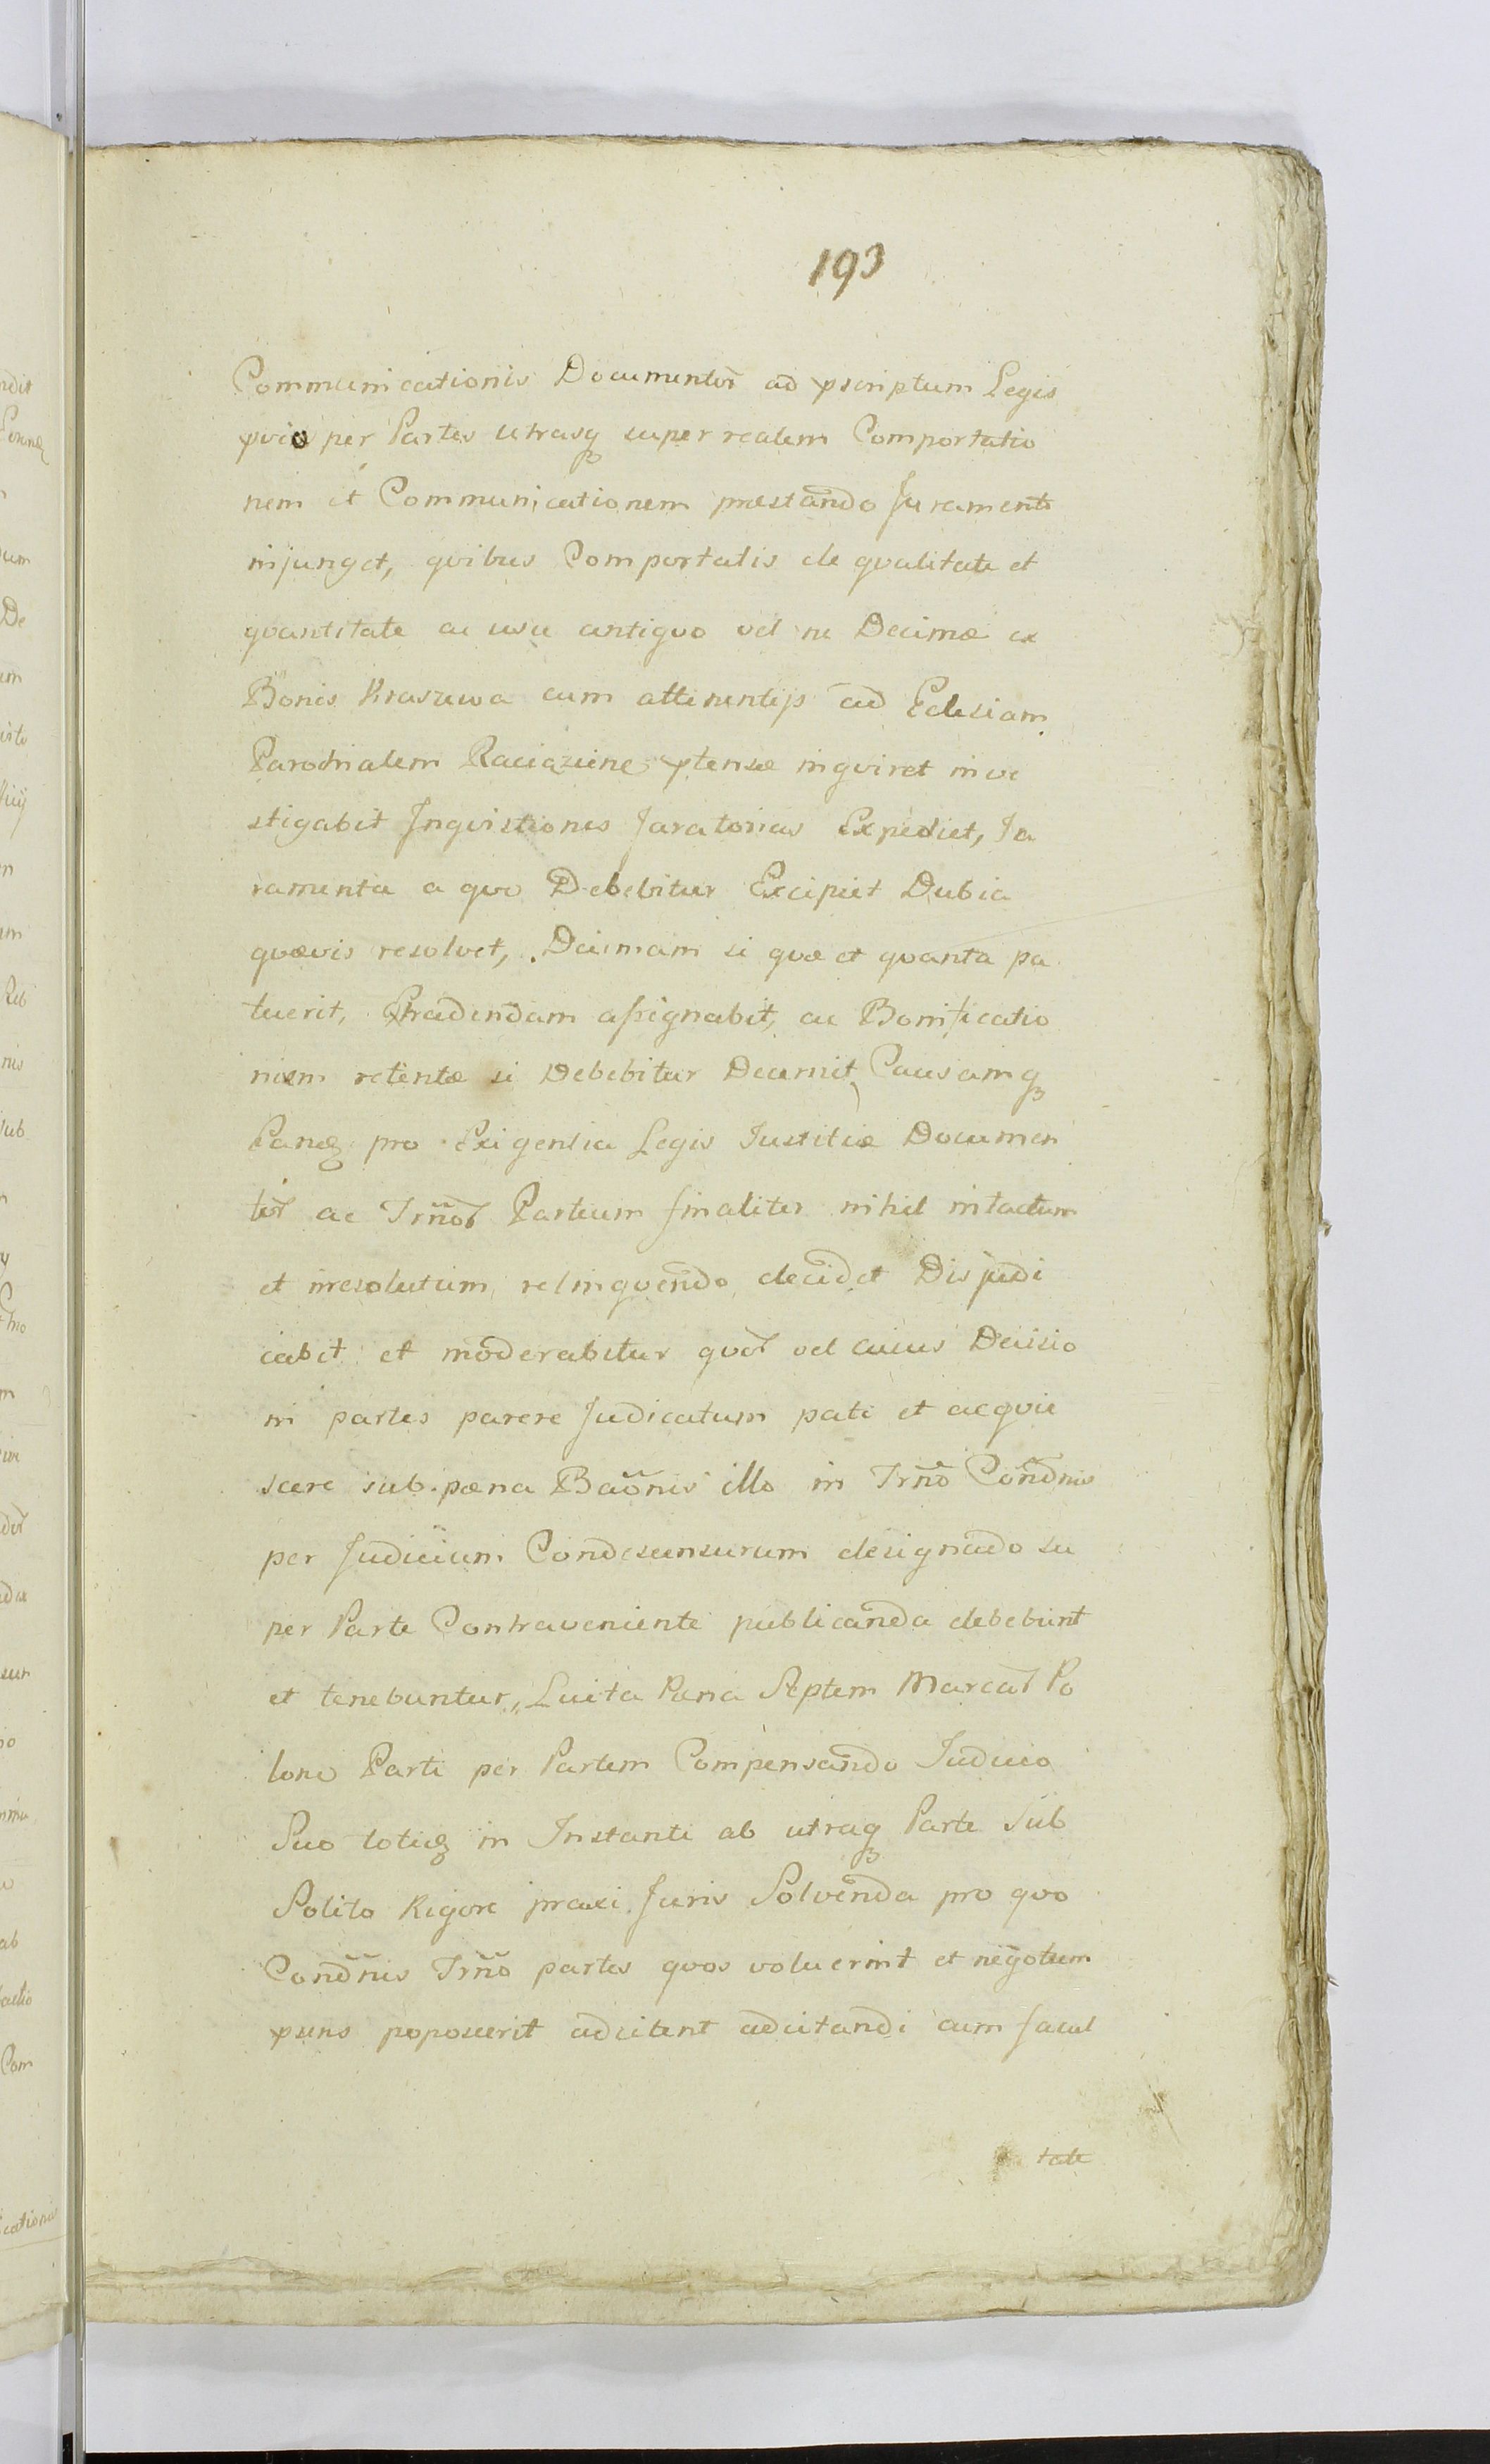 193
Communicationis Documentor ad pscriptum Legis
pvio per Partes utrasq super realem Comportatio
nem et Communicationem præstando Juramento
injunget, qvibus Comportatis de qvalitate et
qvantitate ac usu antiqvo vel ne Decimæ ex
Bonis Kraszewa cum attinentijs ad Eclesiam
Parochialem Raciązine ptensæ inqviret inve
stigabit Inqvisitiones Juratorias Expediet, Ju
ramenta a qvo Debebitur Excipiet Dubia
qvævis resolvet, Decimam si qvæ et qvanta pa
tuerit, Extradendam assignabit, ac Bonificatio
nem retentæ si Debebitur Decernit, Causamq
Eanq pro Exigentia Legis Justitiæ Documen
tor ac Trnor Partium finaliter nihil intactum
et irresolutum relinqvendo decidet Disjudi
cabit et moderabitur qvor vel cuius Decisio
ni partes parere Judicatum pati et acqvie
scere sub pæna Baõnis illo in Trño Condnis
per Judicium Condescensurum designando su
per Parte Contraveniente publicanda debebunt
et tenebuntur, Luita Pæna Septem Marcar Po
lonic Parti per Partem Compensando Judicio
Suo totiq in Instanti ab utraq Parte Sub
Solito Rigore praxi Juris Solvenda pro qvo
Condnis Trño partes qvos voluerint et negotium
psens poposcerit adcitent adcitandi cum facul
tate